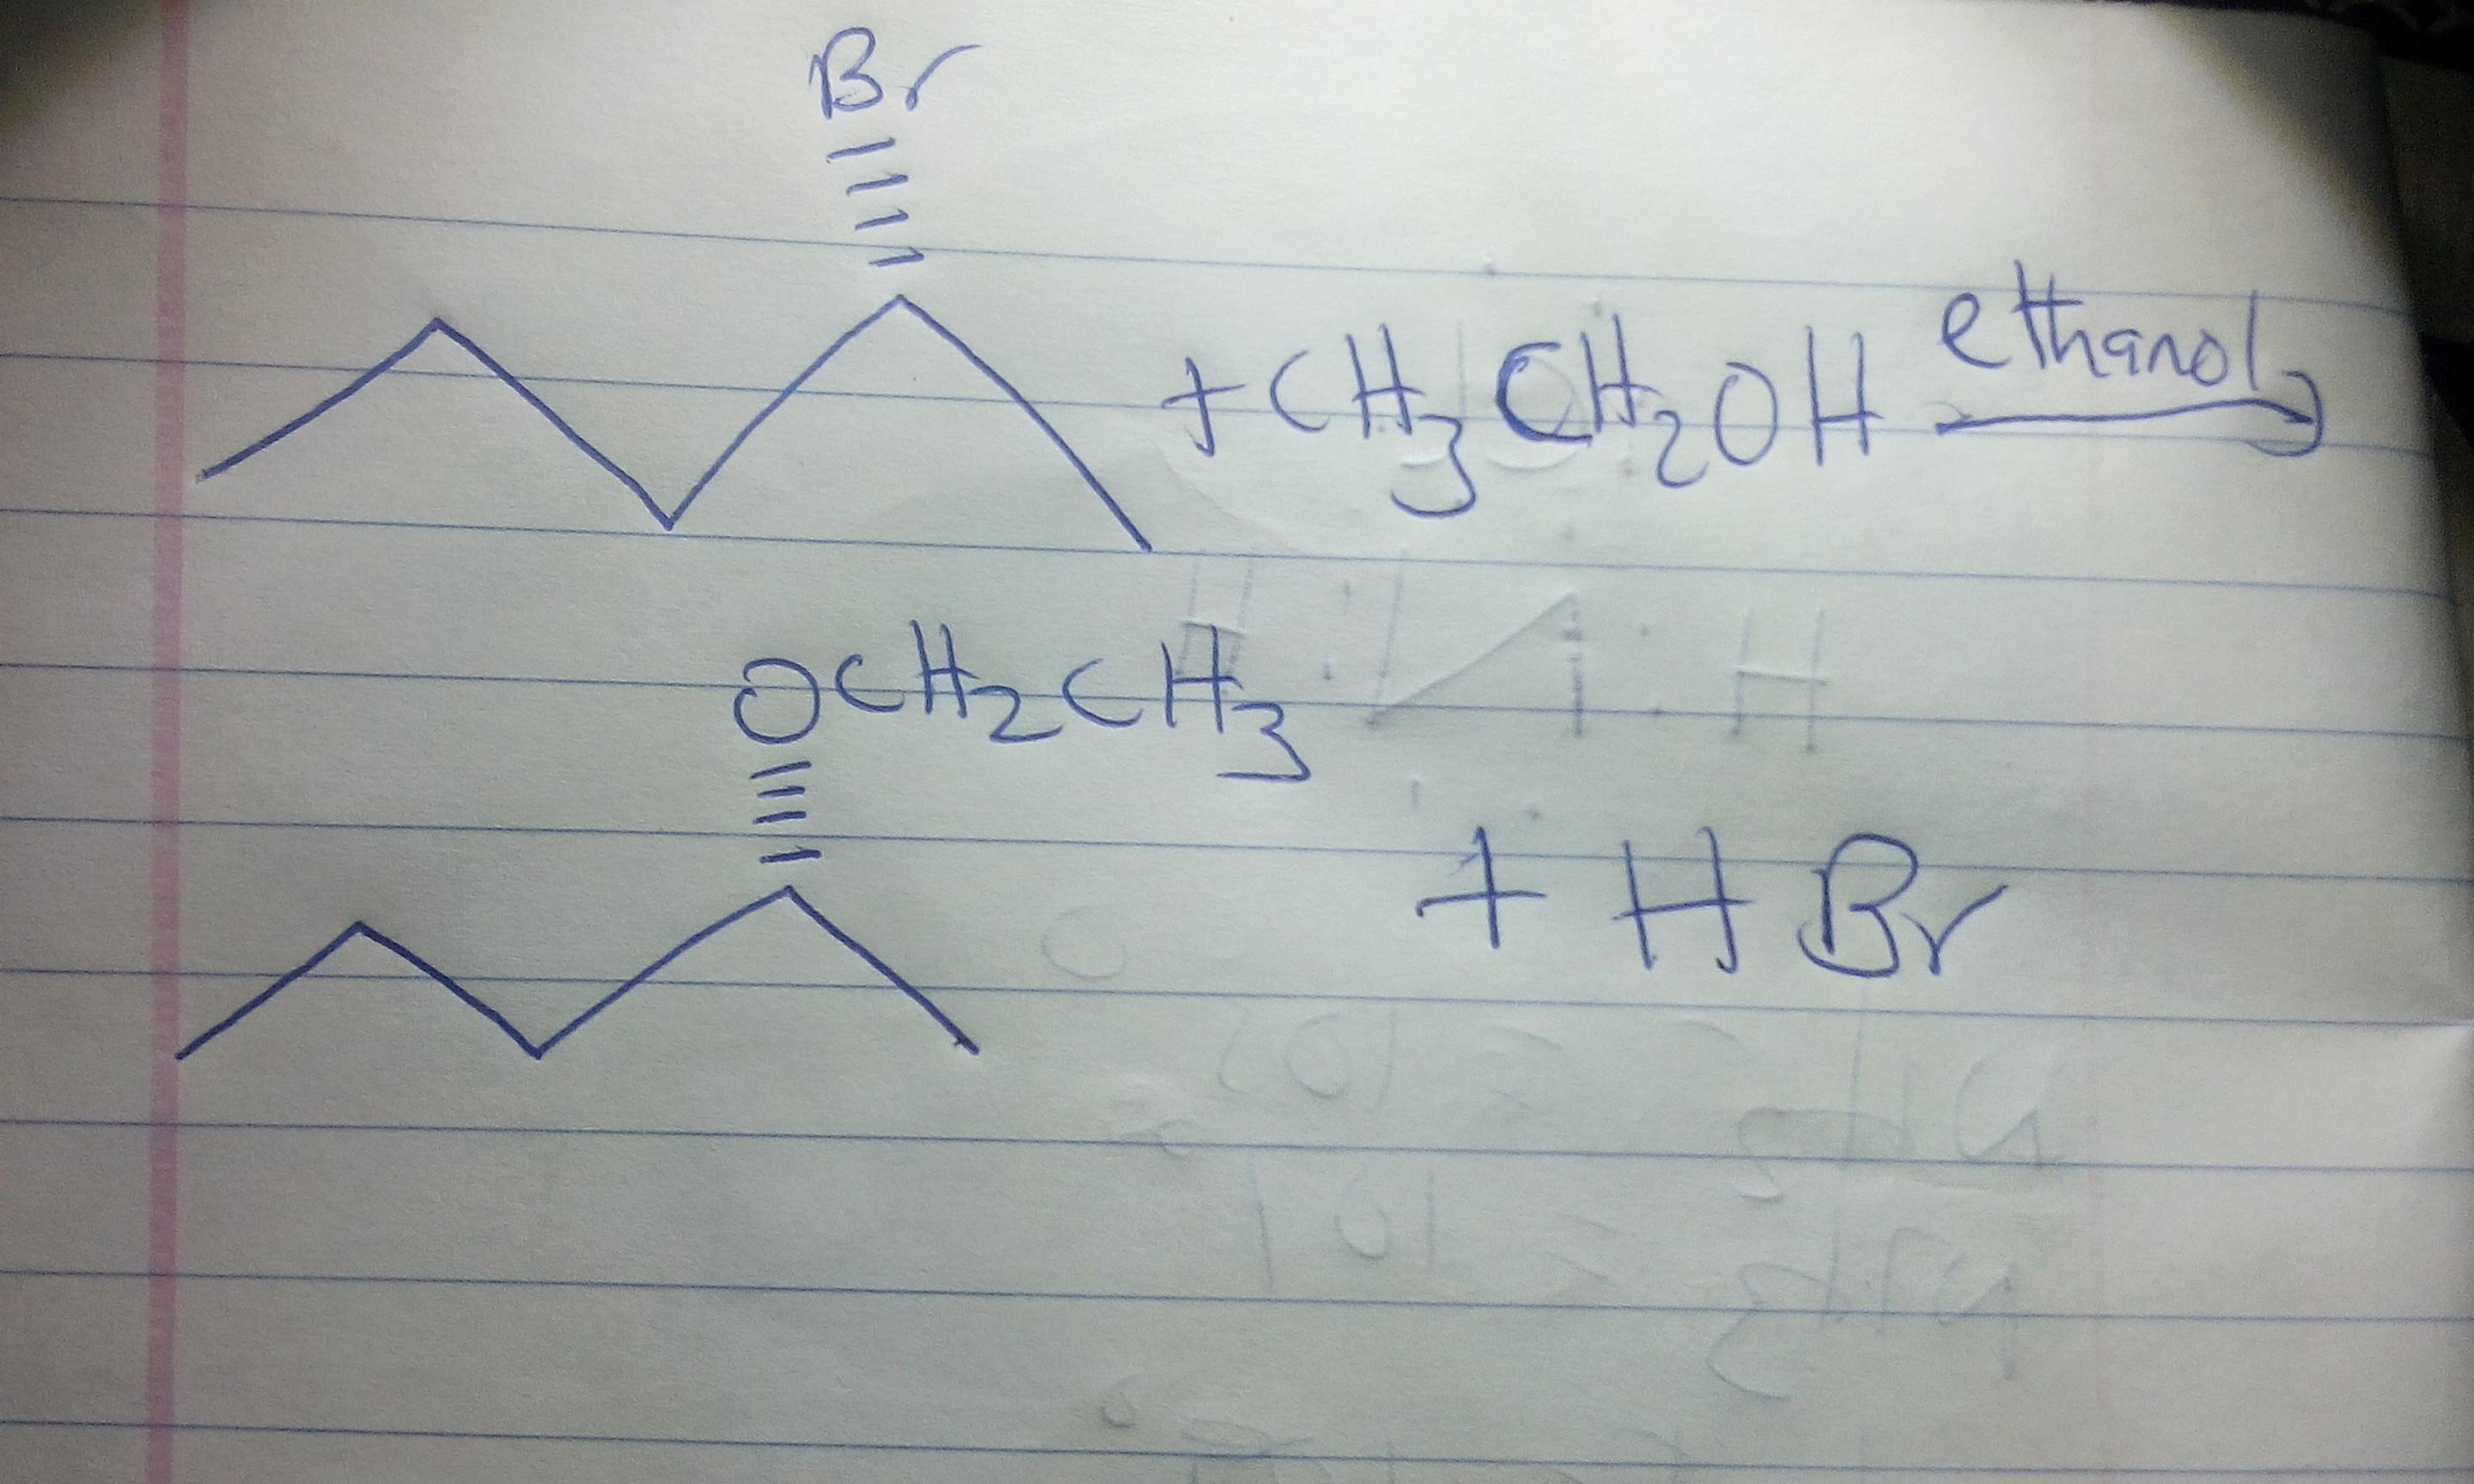 Br
+ CH3CH2OH ethanol
OCH2CH3
+ HBr